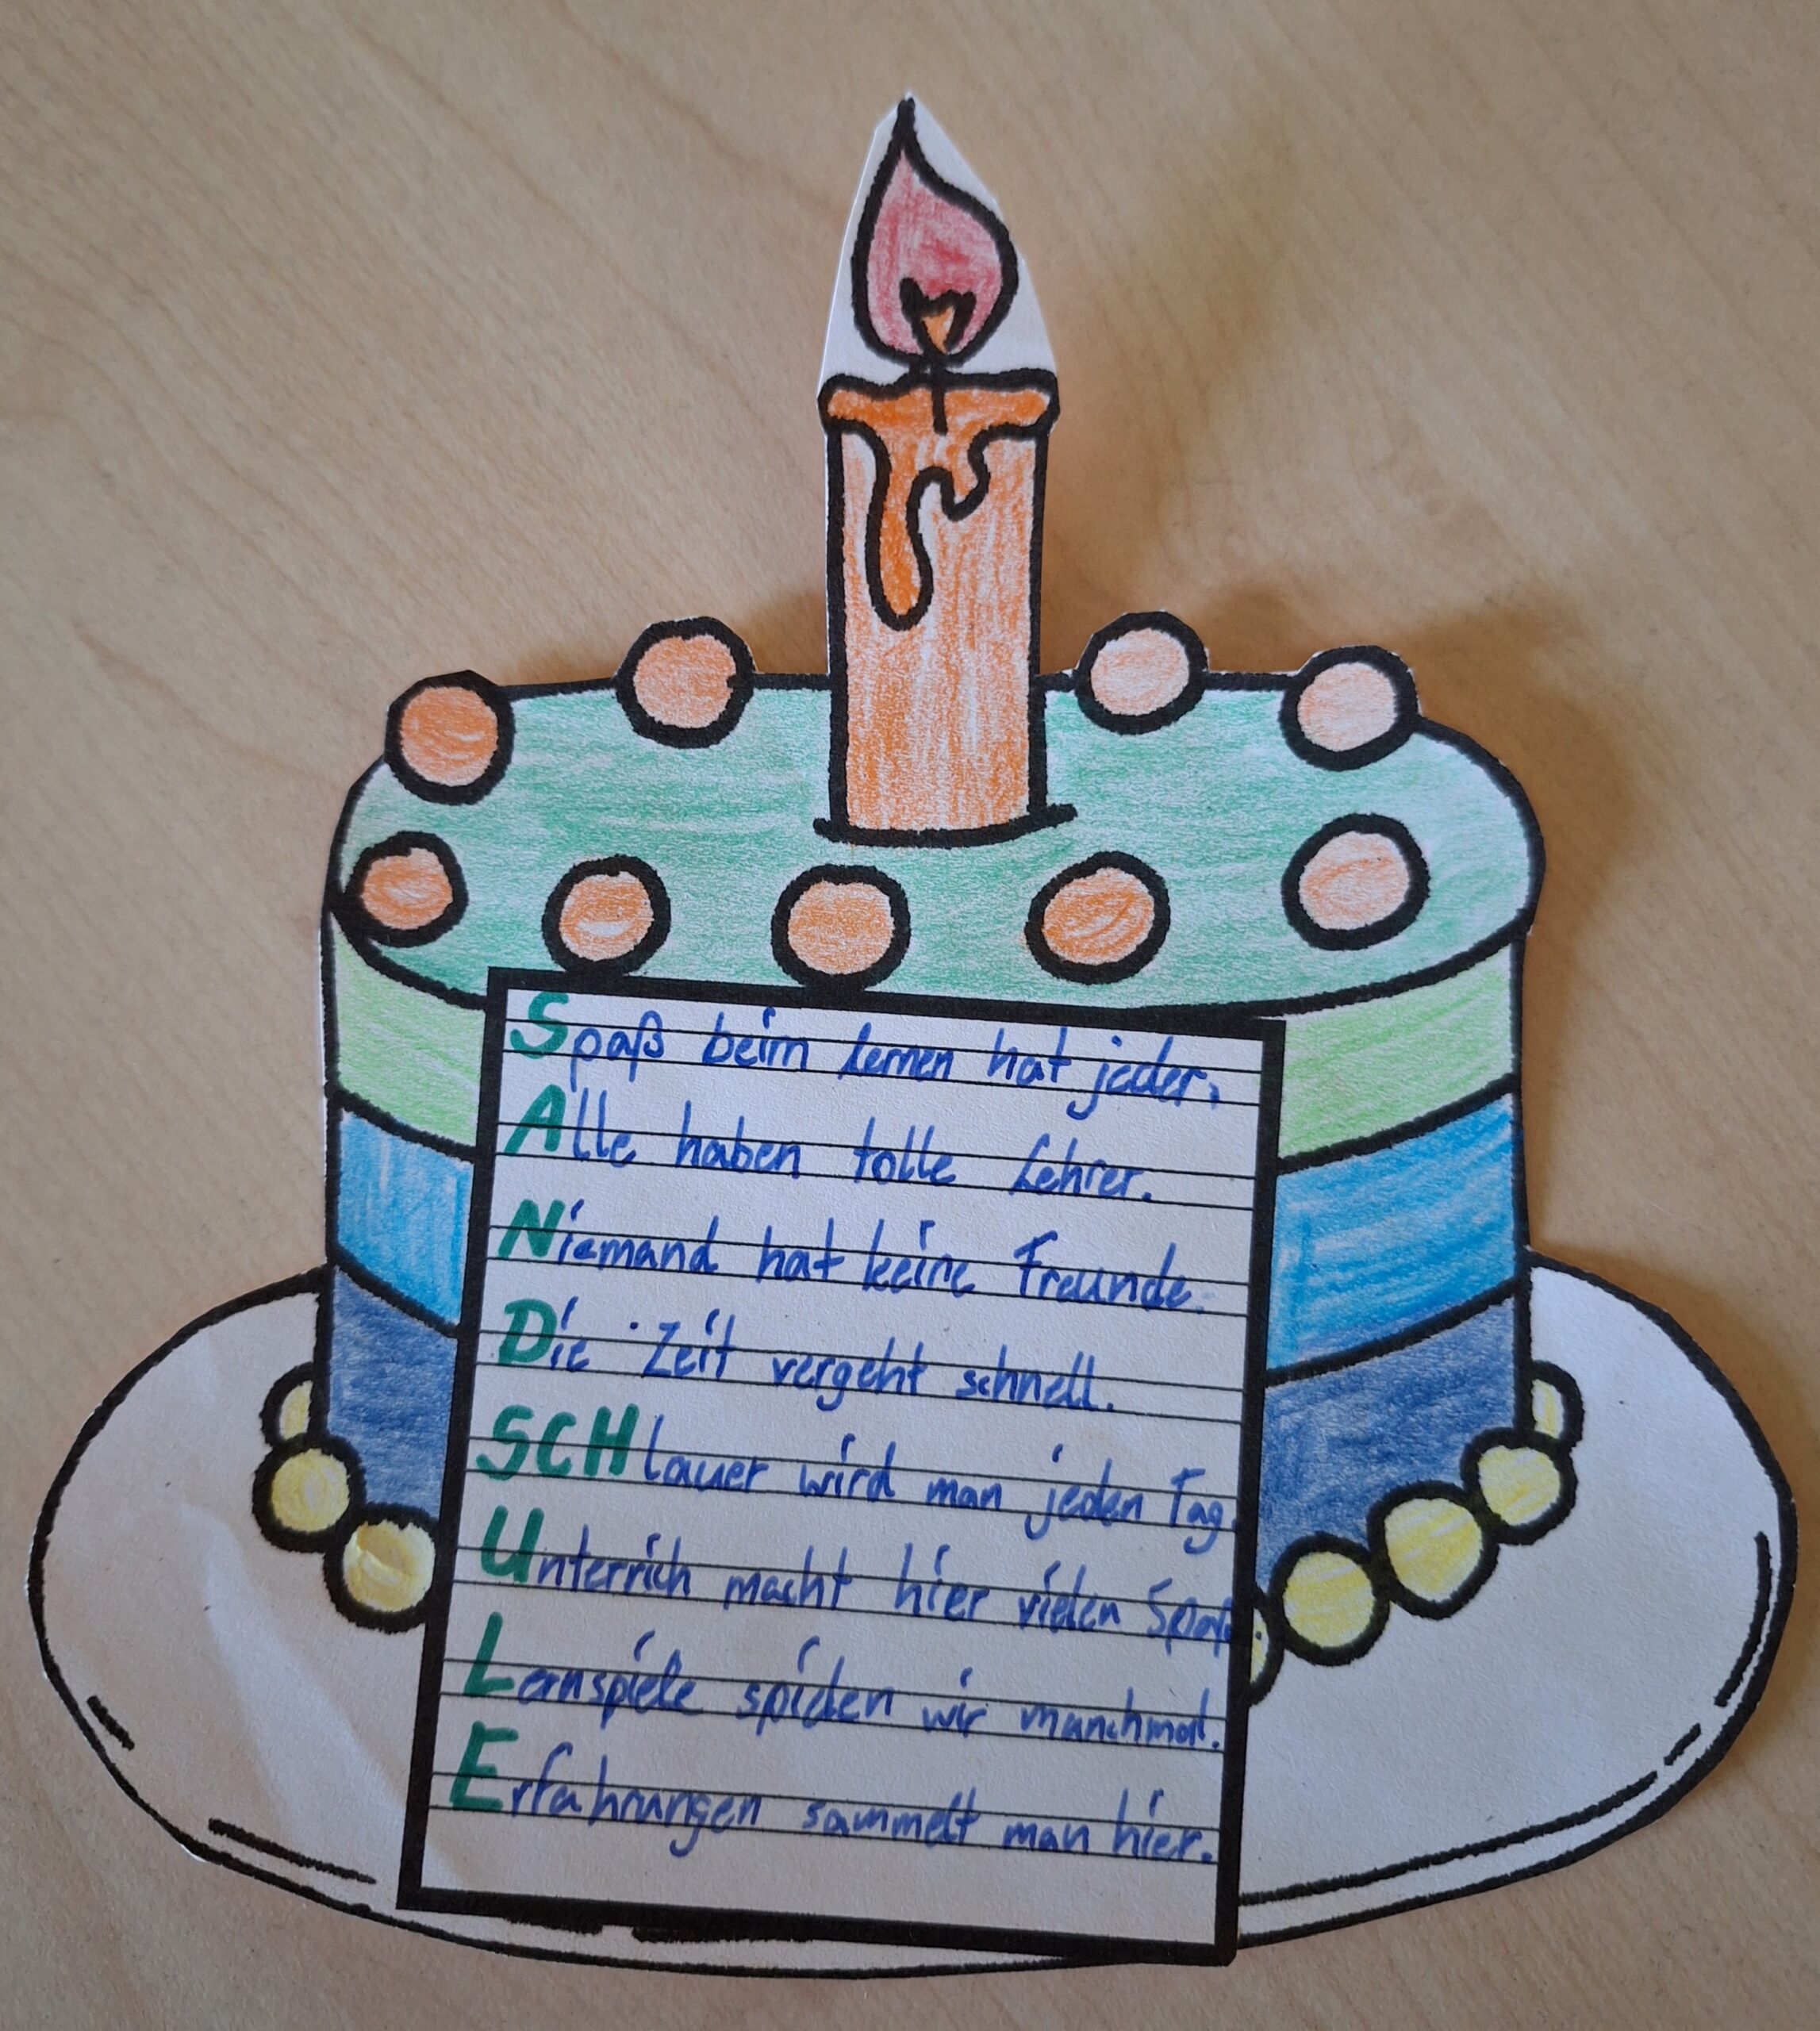 Spaß beim lernen hat jeder.
Alle haben tolle Lehrer.
Niemand hat keine Freunde.
Die Zeit vergeht schnell.
SCHlauer wird man jeden Tag.
Unterrich macht hier vielen Spaß.
Lernspiele spielen wir manchmal.
Erfahrungen sammelt man hier.